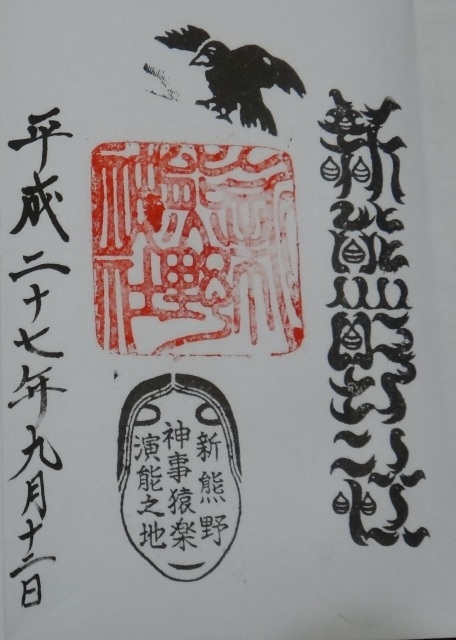 新熊
新熊野神社
新熊野
神事猿楽
演能之地
平成二十七年九月十二日